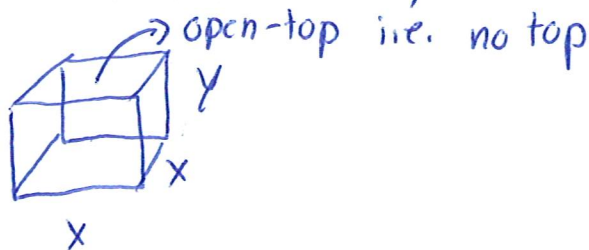 open-top i.e. no top
y
x
x